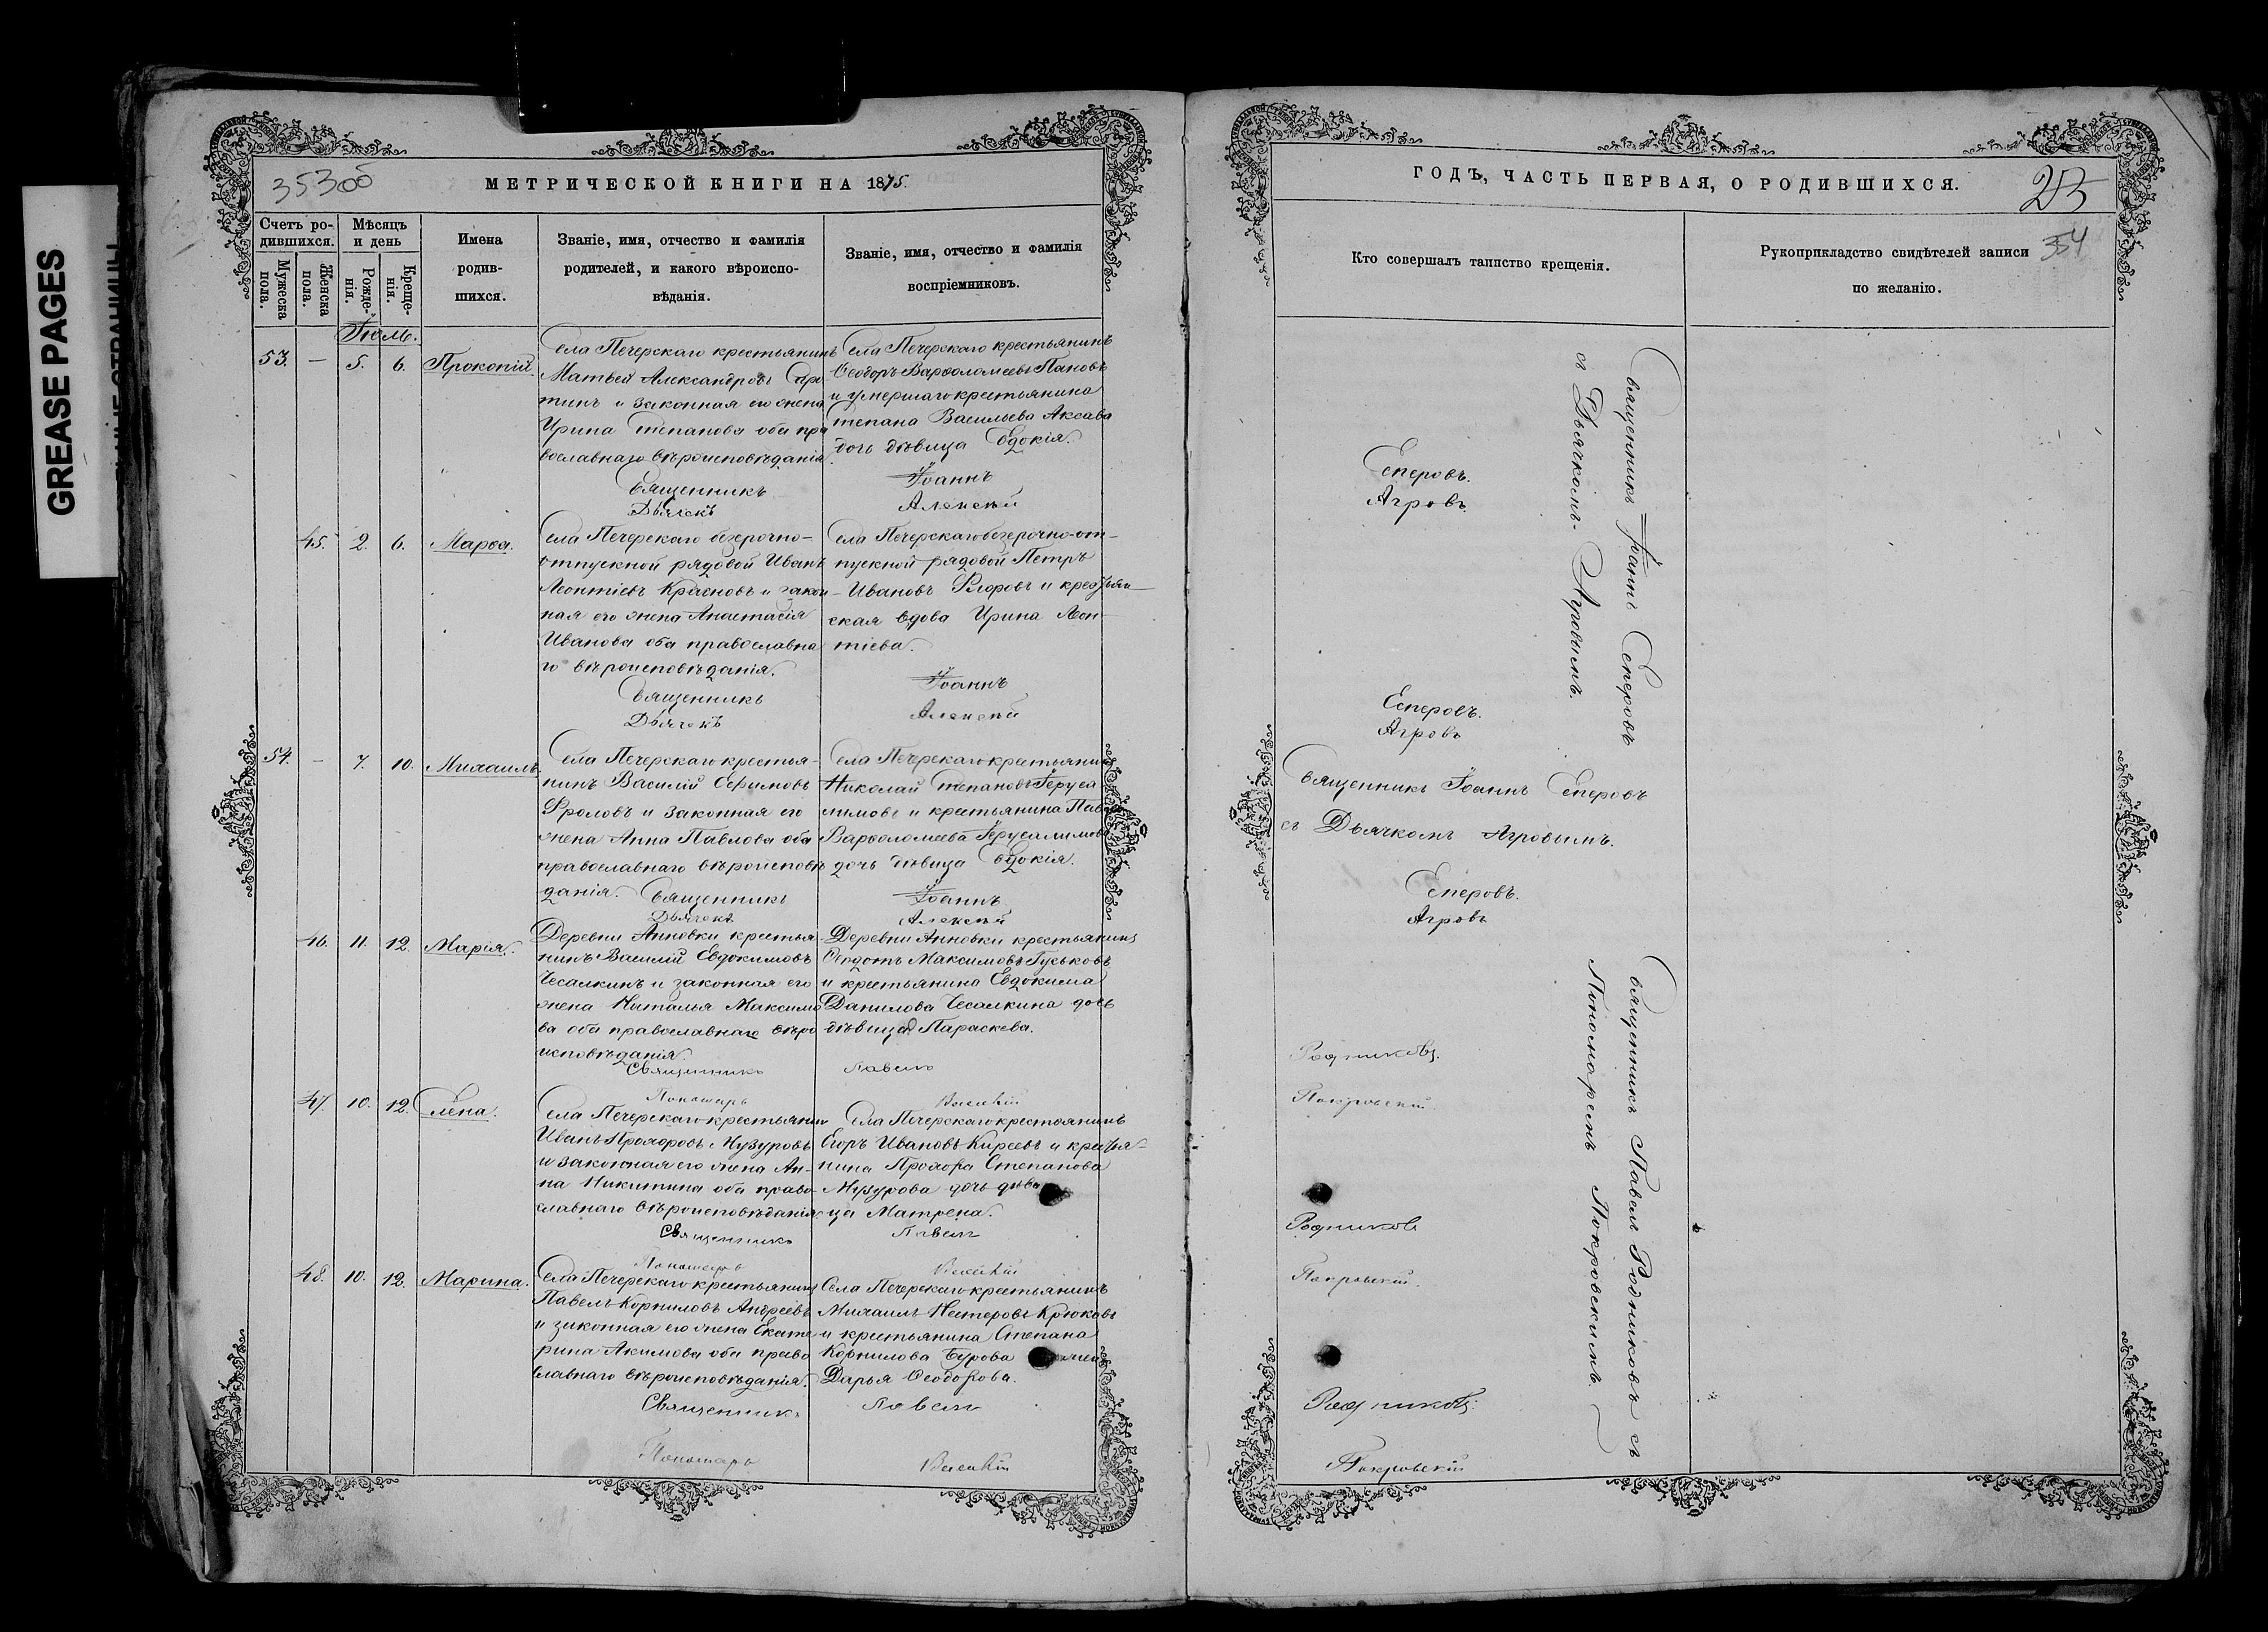 GREASE PAGES
353об
МЕТРИЧЕСКОЙ КНИГИ НА 1875.
Счетъ ро-
дившихся.
Мужеска
пола.
Женска
пола.
Мѣсяцъ
и день
Рожде-
нія.
Креще-
нія.
Имена
родив-
шихся.
Званіе, имя, отчество и фамилія
родителей, и какого вѣроиспо-
вѣданія.
Званіе, имя, отчество и фамилія
воспріемниковъ.
Іюль.
53. — 5. 6. Прокопій.
Села Печерскаго крестьянинъ
Матвей Александровъ
тинъ и законная его жена
Ирина Степанова оба пра
вославнаго вѣроисповѣданія
Села Печерскаго крестьянинъ
Ѳеодоръ Варѳоломеевъ Пановъ
и умершаго крестьянина
Степана Васильева Аксава
дочь дѣвица Евдокія.
Священникъ Іоаннъ
Дьячекъ Алексѣй
45. 2. 6. Марѳа.
Села Печерскаго безсрочно-
отпускной рядовой Иванъ
Леонтіевъ Красновъ и закон
ная его жена Анастасія
Иванова оба православна
го вѣроисповѣданія.
Села Печерскаго безсрочно-от-
пускной рядовой Петръ
Ивановъ Флоровъ и крестьян-
ская вдова Ирина Леон-
тіева.
Священникъ Іоаннъ
Дьячекъ Алексѣй
54. — 7. 10. Михаилъ.
Села Печерскаго крестья-
нинъ Василій Ефимовъ
Фроловъ и законная его
жена Анна Павлова оба
православнаго вѣроисповѣ
данія.
Села Печерскаго крестьянинъ
Николай Степановъ Іеруса
лимовъ и крестьянина Павла
Варѳоломеева Іерусалимова
дочь дѣвица Евдокія.
Священникъ Іоаннъ
Дьячекъ Алексѣй
46. 11. 12. Марія.
Деревни Анновки крестья
нинъ Василій Евдокимовъ
Чесалкинъ и законная его
жена Наталья Максимо
ва оба православнаго вѣро
исповѣданія.
Деревни Анновки крестьянинъ
Ѳеодотъ Максимовъ Гуськовъ
и крестьянина Евдокима
Данилова Чесалкина дочь
дѣвица Параскева.
Священникъ Павелъ
Пономарь Василій
47. 10. 12. Елена.
Села Печерскаго крестьянин
Иванъ Прохоровъ Музуровъ
и законная его жена Ан-
на Никитина оба право
славнаго вѣроисповѣданія
Села Печерскаго крестьянинъ
Егоръ Ивановъ Киреевъ и крестья-
нина Прохора Степанова
Музурова дочь дѣви
ца Матрена.
Священникъ Павелъ
Пономарь Василій
48. 10. 12. Марина.
Села Печерскаго крестьянинъ
Павелъ Корниловъ Андреевъ
и законная его жена Екате
рина Акимова оба право
славнаго вѣроисповѣданія.
Села Печерскаго крестьянинъ
Михаилъ Нестеровъ Крюковъ
и крестьянина Степана
Корнилова Бурова
Дарья Ѳеодорова.
Священникъ Павелъ
Пономарь Василій
ГОДЪ, ЧАСТЬ ПЕРВАЯ, О РОДИВШИХСЯ.
354
Кто совершалъ таинство крещенія.
Рукоприкладство свидѣтелей записи
по желанію.
Священникъ Іоаннъ Есперовъ
съ Дьячкомъ Агровымъ.
Есперовъ.
Агровъ.
Есперовъ.
Агровъ
Священникъ Іоаннъ Есперовъ
съ Дьячкомъ Агровымъ.
Есперовъ.
Агровъ
Священникъ Павелъ Родниковъ съ
Пономаремъ Покровскимъ.
Родниковъ.
Покровскій.
Родниковъ
Покровскій.
Родниковъ.
Покровскій